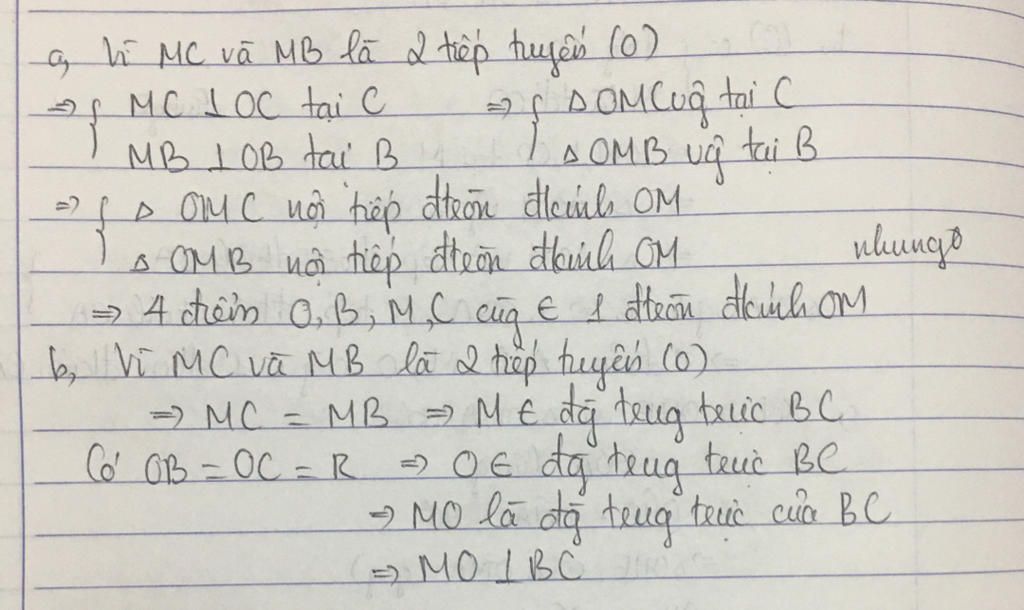 a, Vì MC và MB là 2 tiếp tuyến (O)
=> { MC ⊥ OC tại C => { Δ OMC vg tại C
MB ⊥ OB tại B Δ OMB vg tại B
=> { Δ OMC nội tiếp đtròn đkính OM
Δ OMB nội tiếp đtròn đkính OM nhungo
=> 4 điểm O, B, M, C cùg ∈ 1 đtròn đkính OM
b, Vì MC và MB là 2 tiếp tuyến (O)
=> MC = MB => M ∈ đg trug trực BC
Có OB = OC = R => O ∈ đg trug trực BC
=> MO là đg trug trực của BC
=> MO ⊥ BC